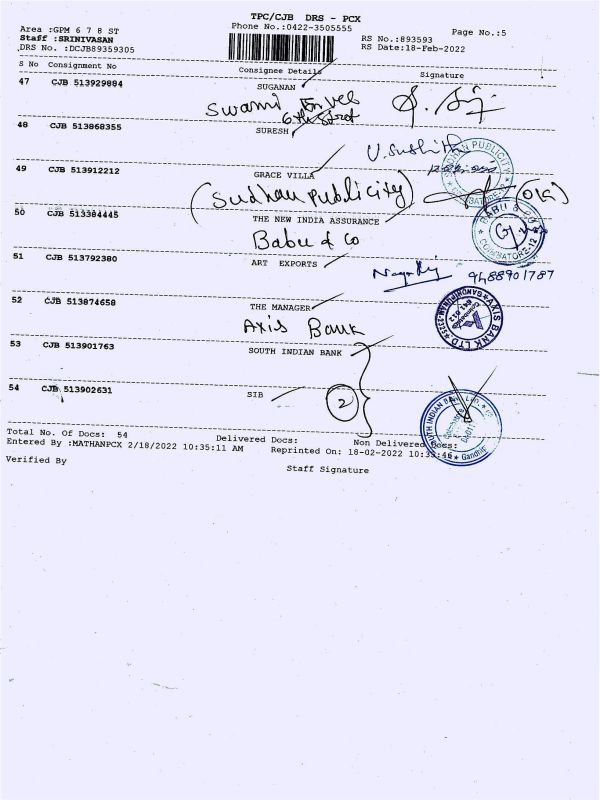 TPC/CJB DRS - PCX
Area :GPM 6 7 8 ST
Phone No.:0422-3505555
Page No.:5
Staff :SRINIVASAN
RS No.:893593
DRS No. :DCJB89359305
RS Date:18-Feb-2022
S No Consignment No Consignee Details Signature
47 CJB 513929884 SUGANAN
Swami
6th Street
48 CJB 513868355 SURESH
49 CJB 513912212 GRACE VILLA
(Sudhan Publicity)
50 CJB 513384445 THE NEW INDIA ASSURANCE
Babu & Co
51 CJB 513792380 ART EXPORTS
9488901787
52 CJB 513874658 THE MANAGER
Axis Bank
53 CJB 513901763 SOUTH INDIAN BANK
54 CJB 513902631 SIB
2
Total No. Of Docs: 54 Delivered Docs: Non Delivered Docs:
Entered By :MATHANPCX 2/18/2022 10:35:11 AM Reprinted On: 18-02-2022 10:35:46
Verified By
Staff Signature